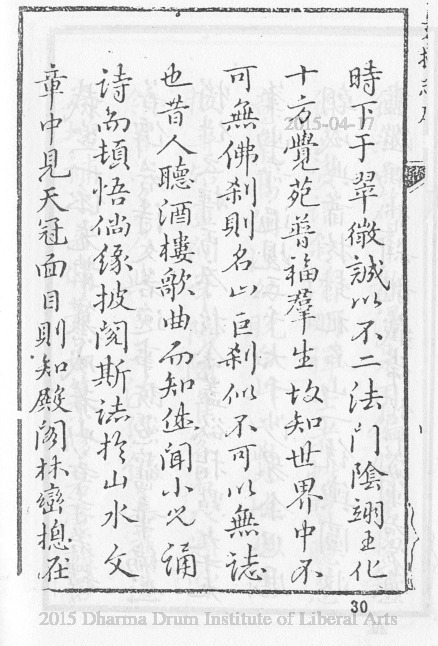 時下于翠微誠以不二法門陰翊王化
十方覺苑普福羣生故知世界中不
可無佛刹則名山巨刹似不可以無誌
也昔人聽酒樓歌曲而知進聞小兒誦
詩而頓悟倘緣披閱斯誌於山水文
章中見天冠面目則知殿閣林巒摠在
2015-04-17
30
2015 Dharma Drum Institute of Liberal Arts